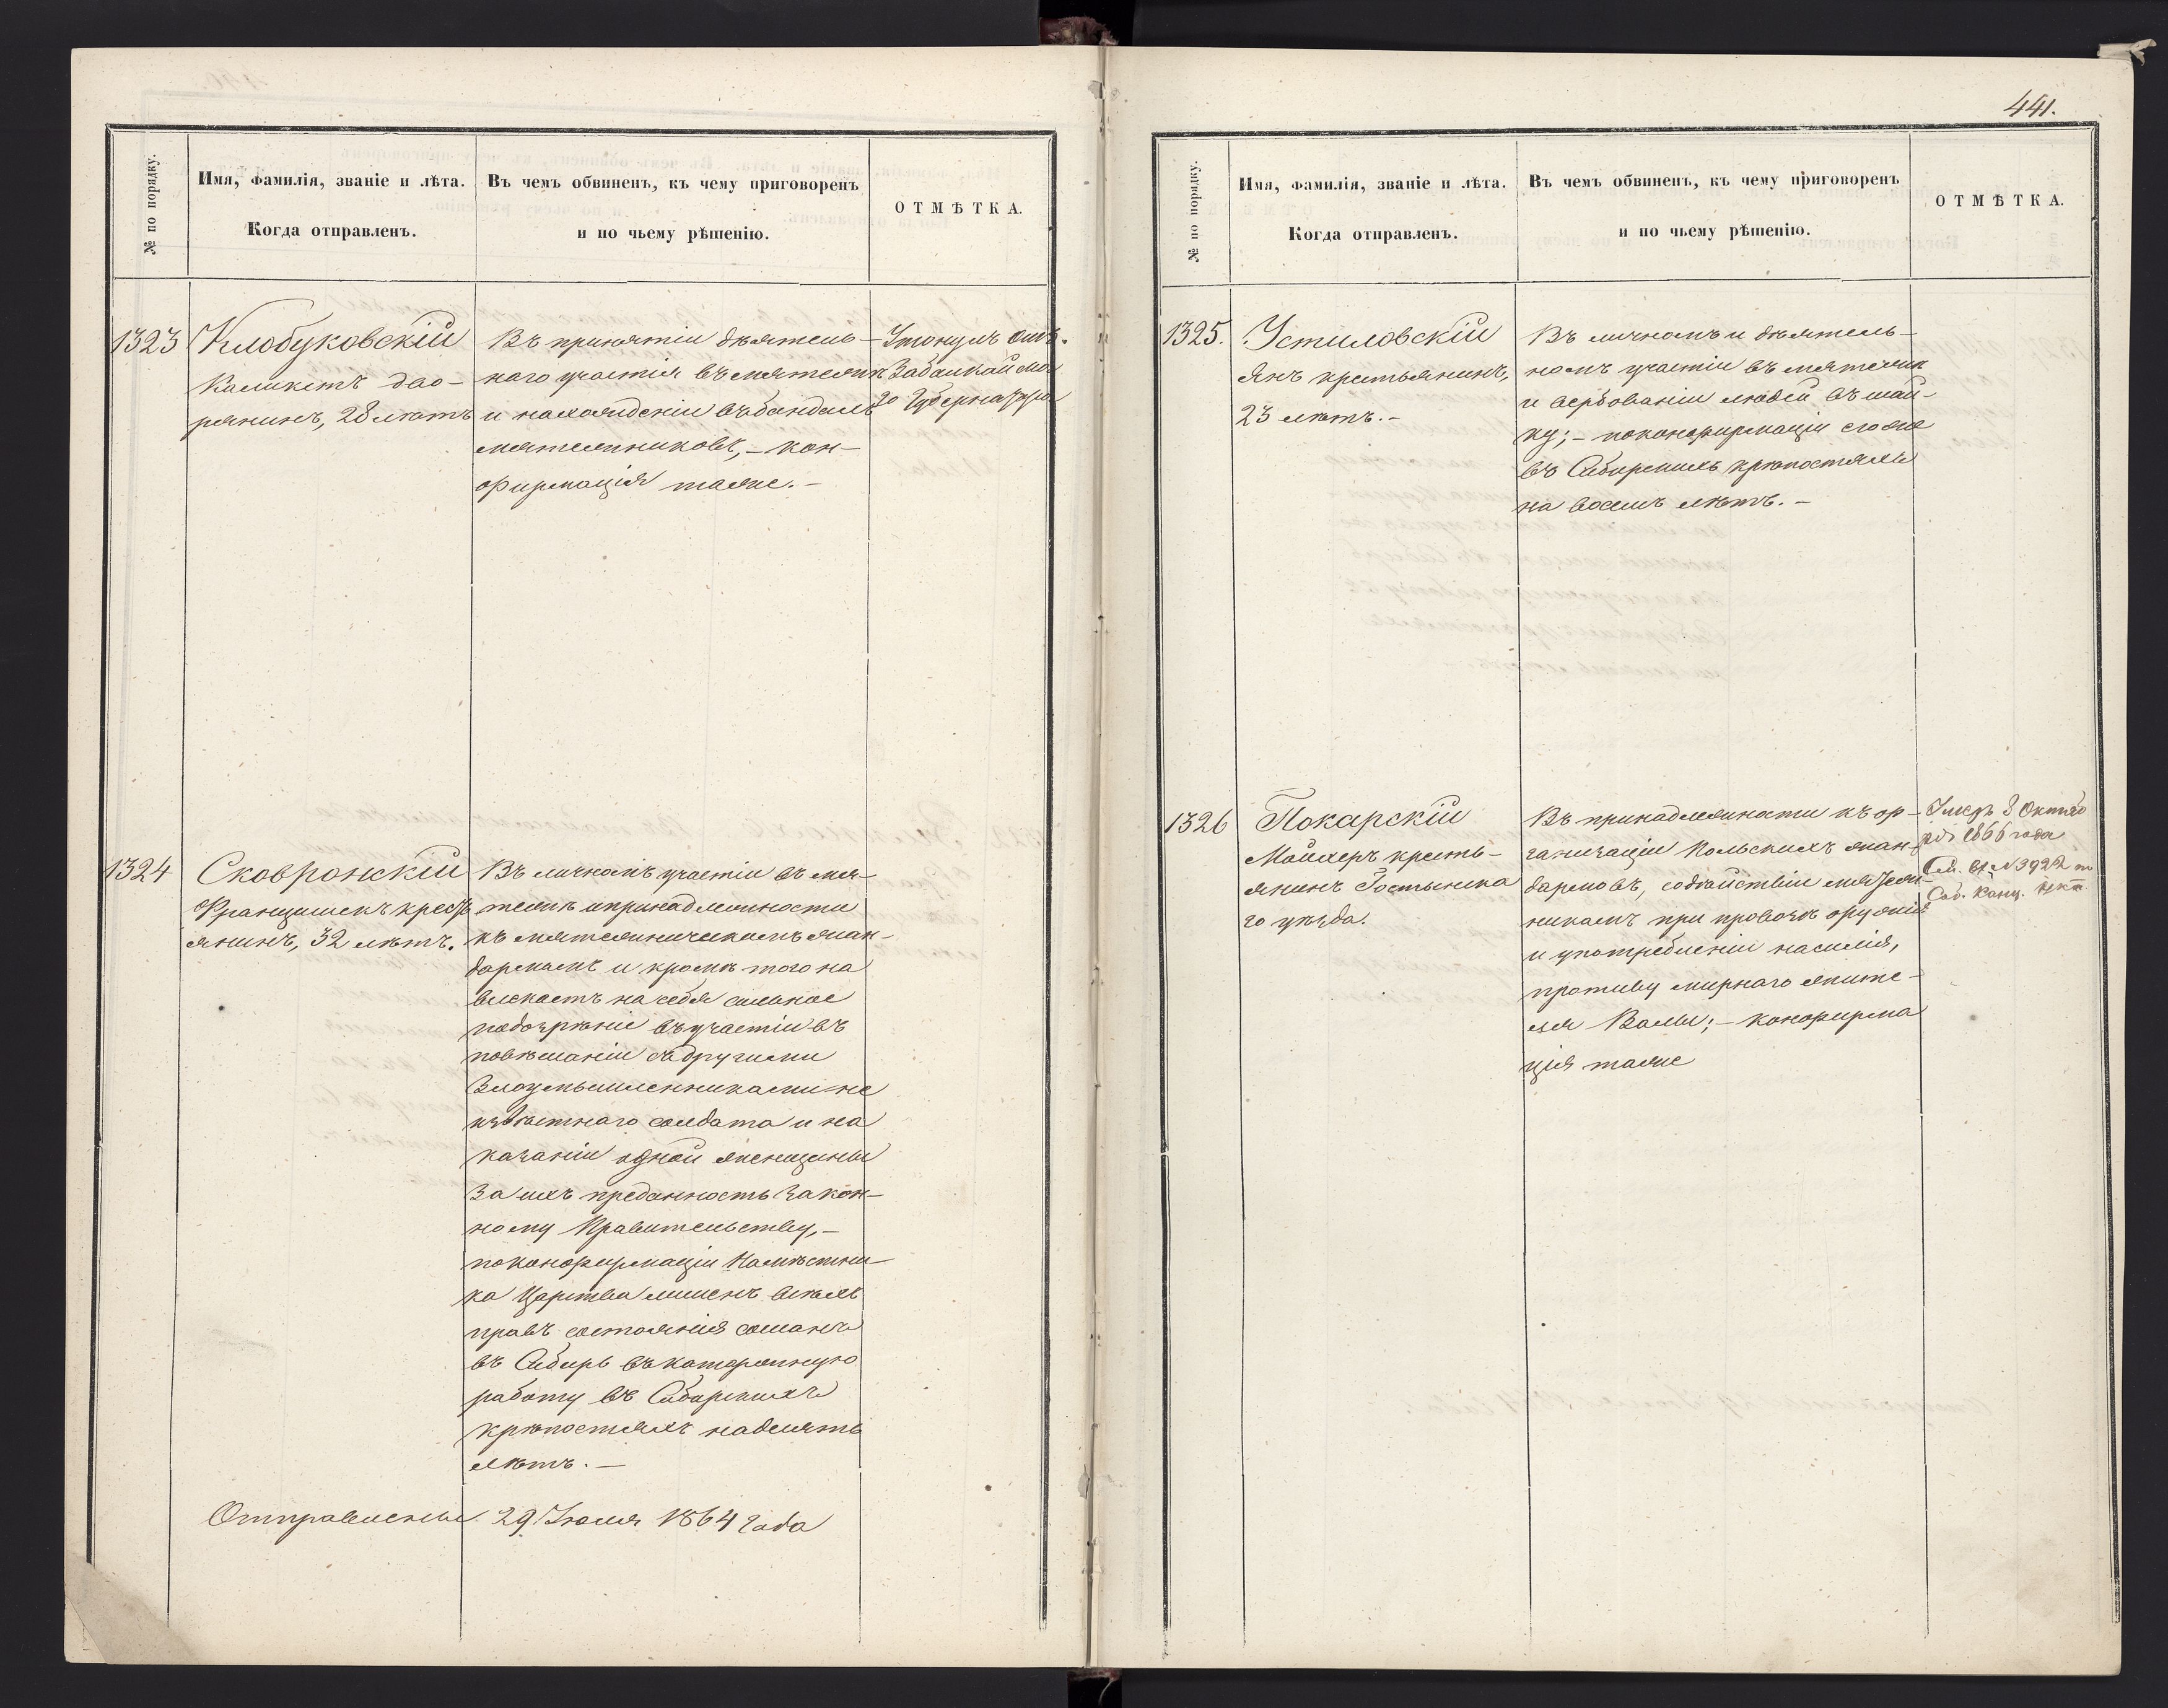 441.
№ по порядку.
Имя, фамилія, званіе и лѣта.
Когда отправленъ.
Въ чемъ обвиненъ, къ чему приговоренъ
и по чьему рѣшенію.
ОТМѢТКА.
1323
Клобуковскій
Каликстъ дво-
рянинъ, 28 лѣтъ
Въ принятіи дѣятель-
наго участія въ мятежѣ
и нахожденіи въ бандахъ
мятежниковъ, - кон-
фирмація таже. -
Утонулъ
Забайкайска
го Губернатора
1324
Сковронскій
Францишекъ кресть
янинъ, 32 лѣтъ.
Въ личномъ участіи въ мя-
тежѣ и принадлежности
къ мятежническимъ жан-
дармамъ и кромѣ того на
влекаетъ на себя сильное
подозрѣніе въ участіи въ
повѣшаніи съ другими
злоумышленниками не
извѣстнаго солдата и на
казаніи одной женщины
за ихъ преданность закон-
ному Правительству, -
по конфирмаціи Намѣстни-
ка Царства лишенъ всѣхъ
правъ состоянія сосланъ
въ Сибирь въ каторжную
работу въ Сибирскихъ
крѣпостяхъ на девять
лѣтъ. -
Отправлены 29 Іюля 1864 года
№ по порядку.
Имя, фамилія, званіе и лѣта.
Когда отправленъ.
Въ чемъ обвиненъ, къ чему приговоренъ
и по чьему рѣшенію.
ОТМѢТКА.
1325.
Устиловскій
Янъ крестьянинъ,
23 лѣтъ. -
Въ личномъ и дѣятель-
номъ участіи въ мятежѣ
и вербованіи людей въ шай-
ку; - по конфирмаціи его же
въ Сибирскихъ крѣпостяхъ
на восемь лѣтъ. -
1326
Покарскій
Мойхеръ кресть-
янинъ Гостынска
го уѣзда.
Въ принадлежности къ ор-
ганизаціи Польскихъ жан-
дармовъ, содѣйствіи мятеж-
никамъ при провозѣ оружія
и употребленіи насилія,
противу мирнаго жите-
ля Валы; - конфирма
ція таже
Умеръ 8 Октяб
ря 1866 года
См. вх. № 3922 по
Канц.